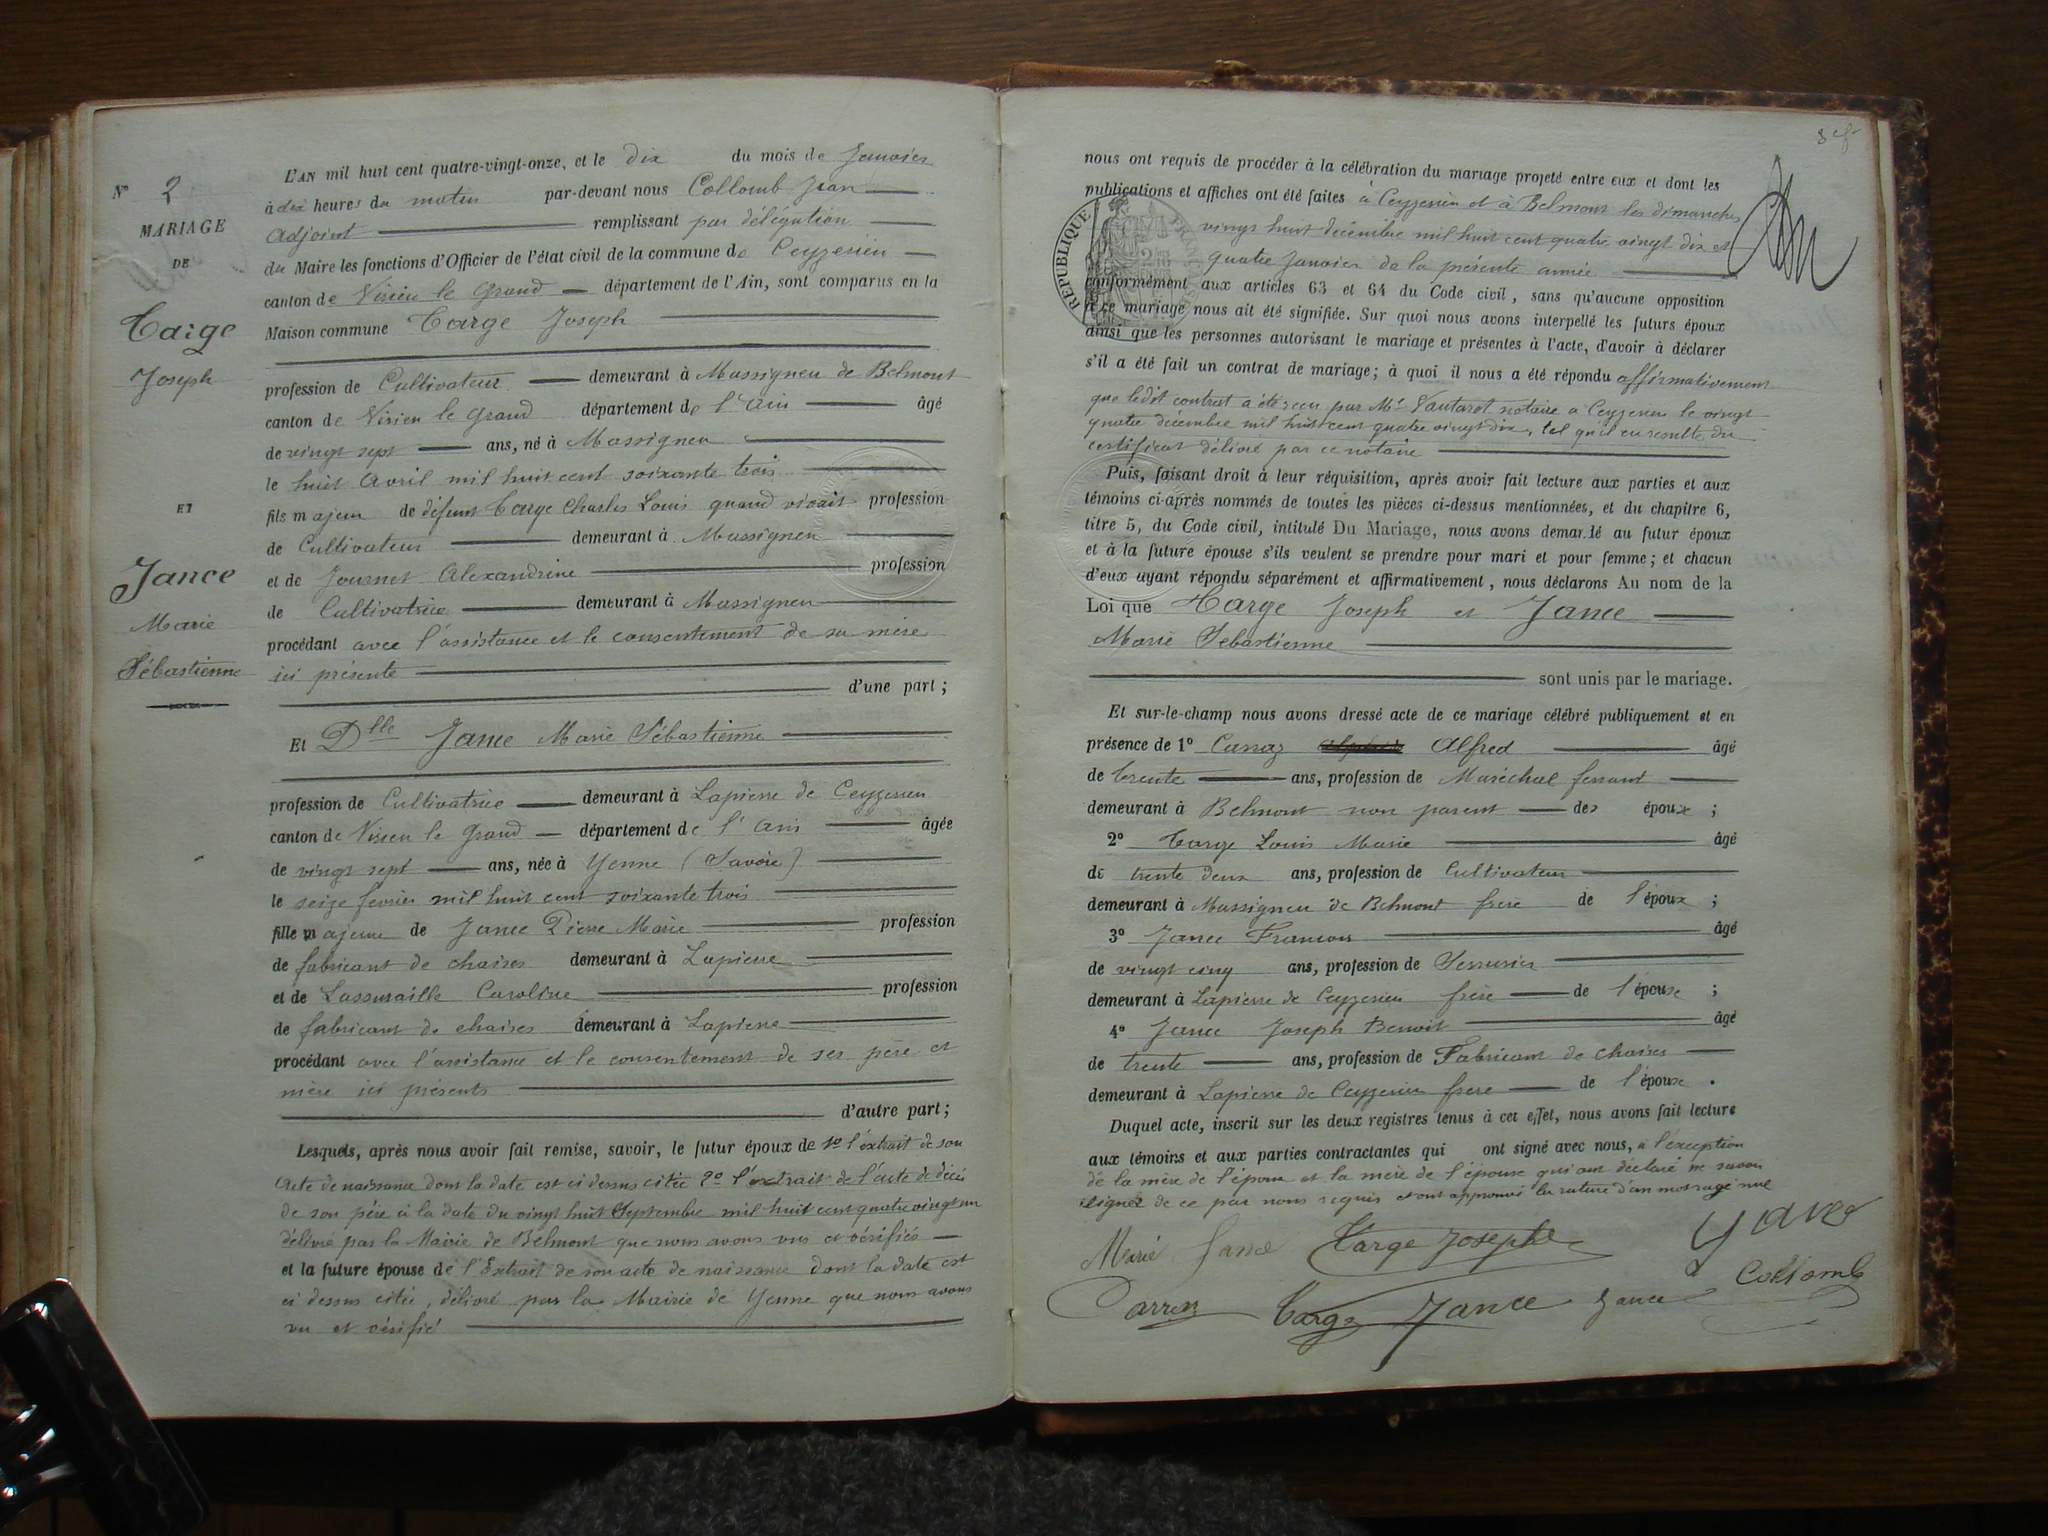 N° 2
MARIAGE
DE
Targe
Joseph
ET
Jance
Marie
Sébastienne
L'AN mil huit cent quatre-vingt-onze, et le dix du mois de Janvier
à dix heures du matin par-devant nous Collomb Jean
Adjoint remplissant par délégation
du Maire les fonctions d'Officier de l'état civil de la commune de Ceyzerieu
canton de Virieu le Grand département de l'Ain, sont comparus en la
Maison commune Targe Joseph
profession de Cultivateur demeurant à Massigneu de Belmont
canton de Virieu le Grand département de l'Ain âgé
de vingt sept ans, né à Massigneu
le huit Avril mil huit cent soixante trois
fils majeur de défunt Targe Charles Louis quand vivait profession
de Cultivateur demeurant à Massigneu
et de Journet Alexandrine profession
de Cultivatrice demeurant à Massigneu
procédant avec l'assistance et le consentement de sa mère
ici présente
d'une part ;
Et Dlle Jance Marie Sébastienne
profession de Cultivatrice demeurant à Lapierre de Ceyzerieu
canton de Virieu le Grand département de l'Ain âgée
de vingt sept ans, née à Yenne (Savoie)
le seize février mil huit cent soixante trois
fille majeure de Jance Pierre Marie profession
de fabricant de chaises demeurant à Lapierre
et de Lassuraille Caroline profession
de fabricant de chaises demeurant à Lapierre
procédant avec l'assistance et le consentement de ses père et
mère ici présents
d'autre part ;
Lesquels, après nous avoir fait remise, savoir, le futur époux de 1° l'extrait de son
Acte de naissance dont la date est ci dessus citée 2° l'extrait de l'acte de décès
de son père à la date du vingt huit Septembre mil huit cent quatre vingt un
délivré par la Mairie de Belmont que nous avons vus et vérifiés
et la future épouse de l'Extrait de son acte de naissance dont la date est
ci dessus citée, délivré par la Mairie de Yenne que nous avons
vu et vérifié
nous ont requis de procéder à la célébration du mariage projeté entre eux et dont les
publications et affiches ont été faites à Ceyzerieu et à Belmont les dimanches
vingt huit décembre mil huit cent quatre vingt dix et
quatre Janvier de la présente année
RÉPUBLIQUE FRANÇAISE
conformément aux articles 63 et 64 du Code civil, sans qu'aucune opposition
à ce mariage nous ait été signifiée. Sur quoi nous avons interpellé les futurs époux
ainsi que les personnes autorisant le mariage et présentes à l'acte, d'avoir à déclarer
s'il a été fait un contrat de mariage ; à quoi il nous a été répondu affirmativement
que ledit contrat a été reçu par Me Vautaret notaire à Ceyzerieu le vingt
quatre décembre mil huit cent quatre vingt dix, tel qu'il en résulte du
certificat délivré par ce notaire
Puis, faisant droit à leur réquisition, après avoir fait lecture aux parties et aux
témoins ci-après nommés de toutes les pièces ci-dessus mentionnées, et du chapitre 6,
titre 5, du Code civil, intitulé Du Mariage, nous avons demandé au futur époux
et à la future épouse s'ils veulent se prendre pour mari et pour femme ; et chacun
d'eux ayant répondu séparément et affirmativement, nous déclarons Au nom de la
Loi que Targe Joseph et Jance
Marie Sebastienne
sont unis par le mariage.
Et sur-le-champ nous avons dressé acte de ce mariage célébré publiquement et en
présence de 1° Alfred âgé
de trente ans, profession de Maréchal ferrant
demeurant à Belmont non parent des époux ;
2° Targe Louis Marie âgé
de trente deux ans, profession de Cultivateur
demeurant à Massigneu de Belmont frère de l'époux ;
3° Jance Francois âgé
de vingt cinq ans, profession de Serrurier
demeurant à Lapierre de Ceyzerieu frère de l'épouse ;
4° Jance Joseph Benoit âgé
de trente ans, profession de Fabricant de chaises
demeurant à Lapierre de Ceyzerieu frère de l'épouse .
Duquel acte, inscrit sur les deux registres tenus à cet effet, nous avons fait lecture
aux témoins et aux parties contractantes qui ont signé avec nous, à l'exception
de la mère de l'époux et la mère de l'épouse qui ont déclaré ne savoir
signer de ce par nous requis et ont approuvé la rature d'un mot rayé nul
Marie Jance Targe Joseph Jance
Targe Jance Jance Collomb